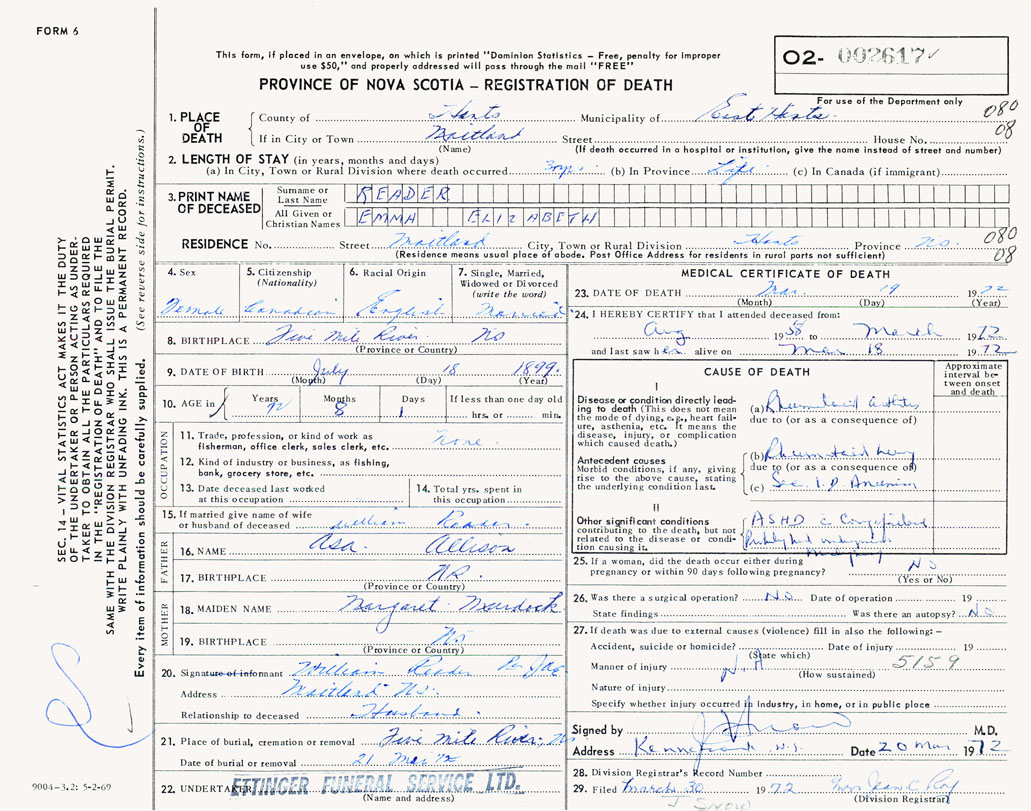 FORM 6
This form, if placed in an envelope, on which is printed "Dominion Statistics – Free, penalty for improper
use $50," and properly addressed will pass through the mail "FREE"
O2- 002617
PROVINCE OF NOVA SCOTIA – REGISTRATION OF DEATH
For use of the Department only
080
08
1. PLACE OF DEATH
County of Hants Municipality of East Hants
If in City or Town Maitland Street House No.
(Name) (If death occurred in a hospital or institution, give the name instead of street and number)
2. LENGTH OF STAY (in years, months and days)
(a) In City, Town or Rural Division where death occurred (b) In Province Life (c) In Canada (if immigrant)
3. PRINT NAME OF DECEASED
Surname or Last Name READER
All Given or Christian Names EMMA ELIZABETH
RESIDENCE No. Street Maitland City, Town or Rural Division Hants Province N.S.
080
08
(Residence means usual place of abode. Post Office Address for residents in rural parts not sufficient)
4. Sex
Female
5. Citizenship (Nationality)
Canadian
6. Racial Origin
English
7. Single, Married, Widowed or Divorced (write the word)
Married
8. BIRTHPLACE Five Mile River NS
(Province or Country)
9. DATE OF BIRTH July 18 1899
(Month) (Day) (Year)
10. AGE in Years 72 Months 8 Days 1 If less than one day old
hrs. or min.
OCCUPATION
11. Trade, profession, or kind of work as
fisherman, office clerk, sales clerk, etc. none
12. Kind of industry or business, as fishing,
bank, grocery store, etc.
13. Date deceased last worked
at this occupation
14. Total yrs. spent in
this occupation
15. If married give name of wife
or husband of deceased William Reader
FATHER
16. NAME Asa Allison
17. BIRTHPLACE
(Province or Country)
MOTHER
18. MAIDEN NAME Margaret Murdock
19. BIRTHPLACE NS
(Province or Country)
20. Signature of informant William Reader Per
Address Maitland NS.
Relationship to deceased Husband
21. Place of burial, cremation or removal Five Mile River, NS
Date of burial or removal 21 Mar 72
22. UNDERTAKER ETTINGER FUNERAL SERVICE LTD.
(Name and address)
MEDICAL CERTIFICATE OF DEATH
23. DATE OF DEATH Mar. 19 1972
(Month) (Day) (Year)
24. I HEREBY CERTIFY that I attended deceased from:
Aug 1958 to March 1972
and last saw her alive on Mar 18 1972
CAUSE OF DEATH
Approximate interval between onset and death
I
Disease or condition directly leading
to death (This does not mean
the mode of dying, e.g., heart failure,
asthenia, etc. It means the
disease, injury, or complication
which caused death.)
(a) Rheumatoid Arthritis
due to (or as a consequence of)
Antecedent causes
Morbid conditions, if any, giving
rise to the above cause, stating
the underlying condition last.
(b) Rheumatoid lung
due to (or as a consequence of)
(c) Sec. I.D. Anaemia
II
Other significant conditions
contributing to the death, but not
related to the disease or condition
causing it.
ASHD c
25. If a woman, did the death occur either during
pregnancy or within 90 days following pregnancy? No
(Yes or No)
26. Was there a surgical operation? No Date of operation 19
State findings Was there an autopsy? No
27. If death was due to external causes (violence) fill in also the following: –
Accident, suicide or homicide? Date of injury 19
(State which)
Manner of injury N.A 5159
(How sustained)
Nature of injury
Specify whether injury occurred in industry, in home, or in public place
Signed by M.D.
Address N.S. Date 20 Mar 1972
28. Division Registrar's Record Number
29. Filed March 30 1972 Mrs Jean C
(Division Registrar)
SEC. 14 – VITAL STATISTICS ACT MAKES IT THE DUTY
OF THE UNDERTAKER OR PERSON ACTING AS UNDER-
TAKER TO OBTAIN ALL THE PARTICULARS REQUIRED
IN THE "REGISTRATION OF DEATH" AND TO FILE THE
SAME WITH THE DIVISION REGISTRAR WHO SHALL ISSUE THE BURIAL PERMIT.
WRITE PLAINLY WITH UNFADING INK. THIS IS A PERMANENT RECORD.
Every item of information should be carefully supplied. (See reverse side for instructions.)
9004-3.2: 5-2-69